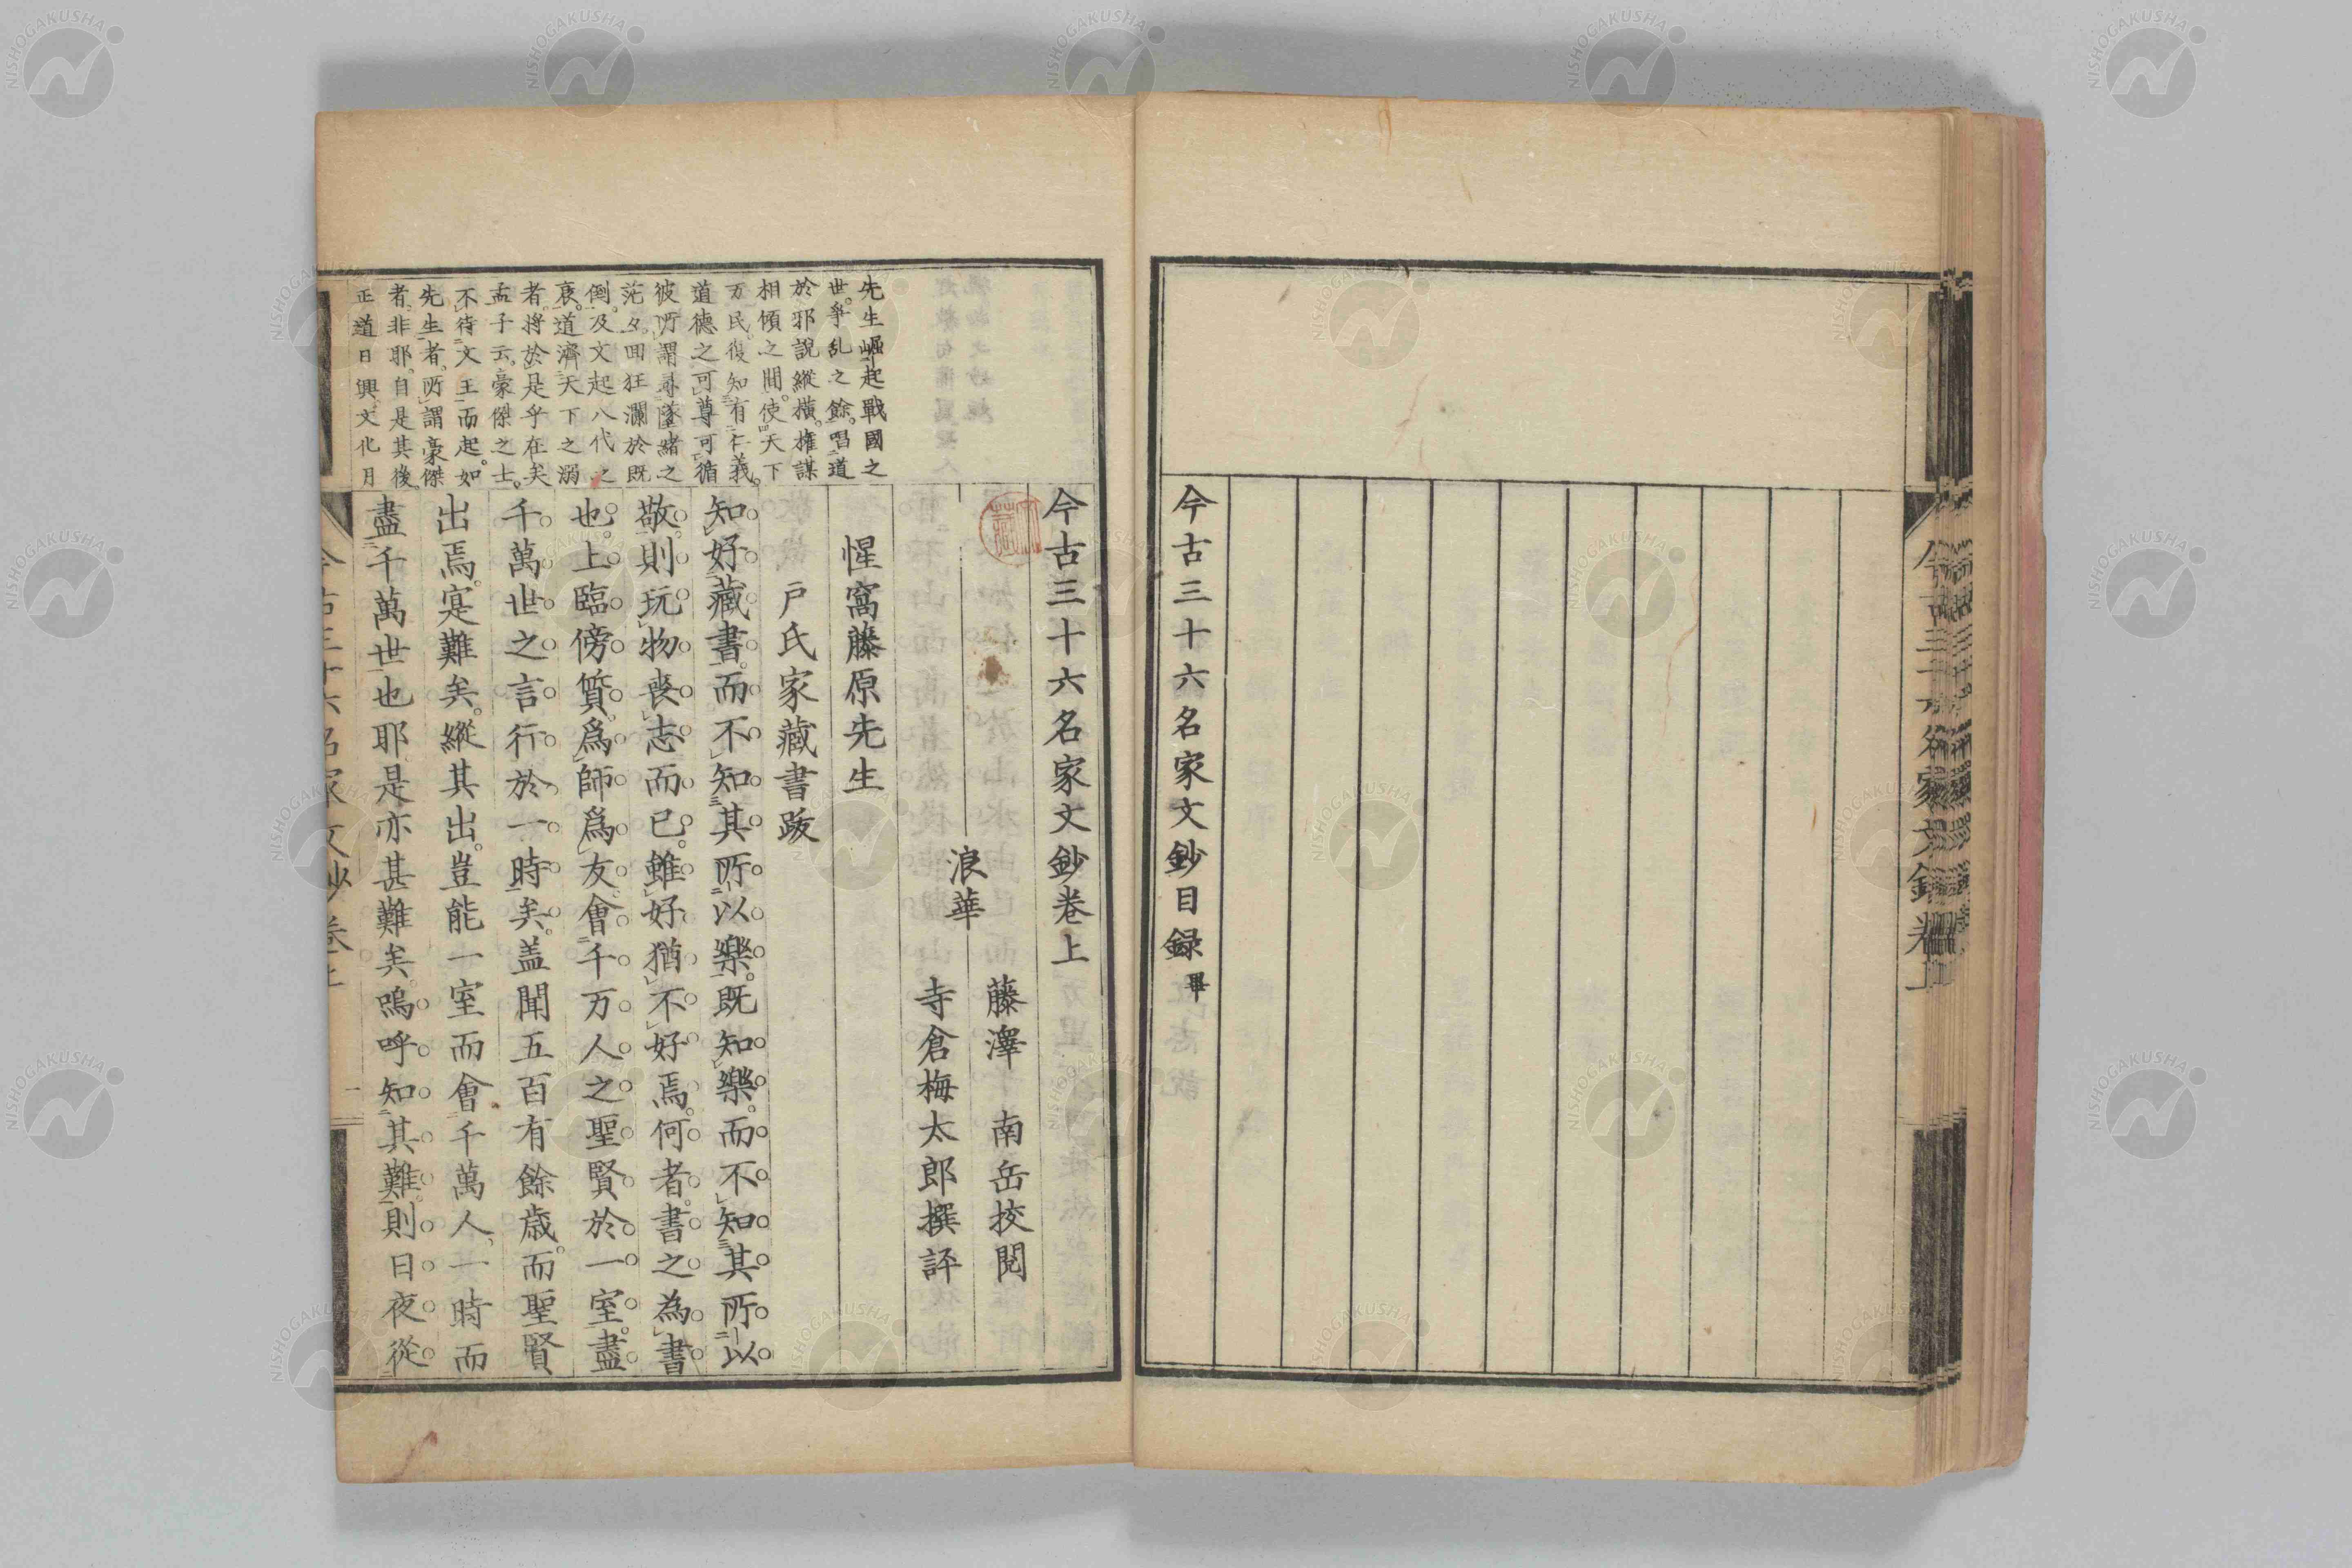 今古三十六名家文鈔目録畢
今古三十六名家文鈔卷上
浪華
藤澤 南岳挍閲
寺倉梅太郎撰評
惺窩藤原先生
戸氏家藏書跋
知好藏書而不知其所以樂既知樂而不知其所以
敬則玩物喪志而已雖好猶不好焉何者書之為書
也上臨傍質爲師爲友會千万人之聖賢於一室盡
千萬世之言行於一時矣盖聞五百有餘歳而聖賢
出焉寔難矣縱其出豈能一室而會千萬人一時而
盡千萬世也耶是亦甚難矣嗚呼知其難則日夜從
先生崛起戰國之
世爭乱之餘唱道
於邪說縱横権謀
相傾之間使天下
万民復知有仁義
道德之可尊可循
彼所謂尋墜緒之
茫々回狂瀾於既
倒及文起八代之
衰道濟天下之溺
者將於是乎在矣
孟子云豪傑之士
不待文王而起如
先生者所謂豪傑
者非耶自是其後
正道日興文化月
NISHOGAKUSHA